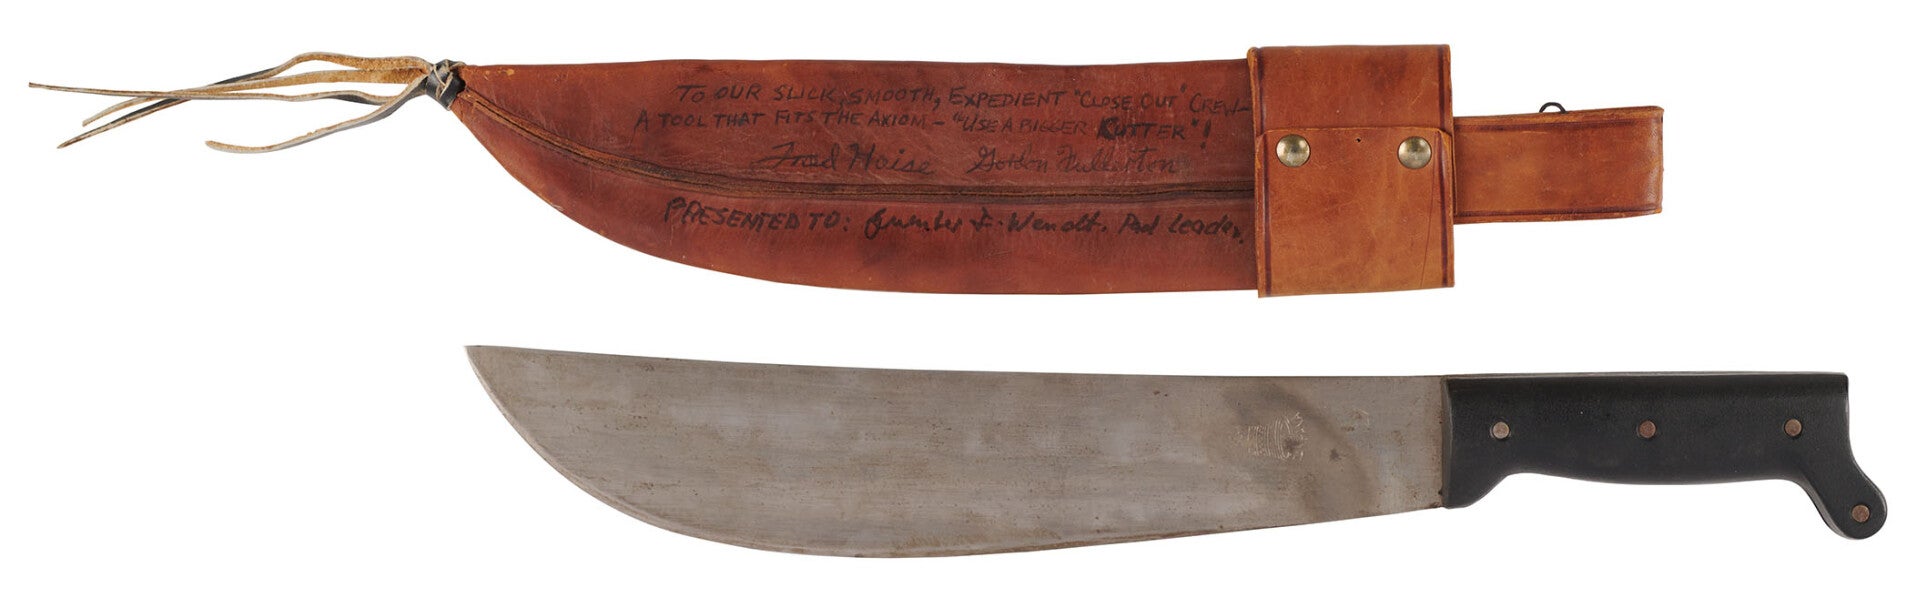 TO OUR SLICK, SMOOTH, EXPEDIENT "CLOSE OUT" CREW-
A TOOL THAT FITS THE AXIOM - "USE A BIGGER CUTTER"!
Fred Haise Gordon Fullerton
PRESENTED TO: Guenter F. Wendt. Pad Leader.